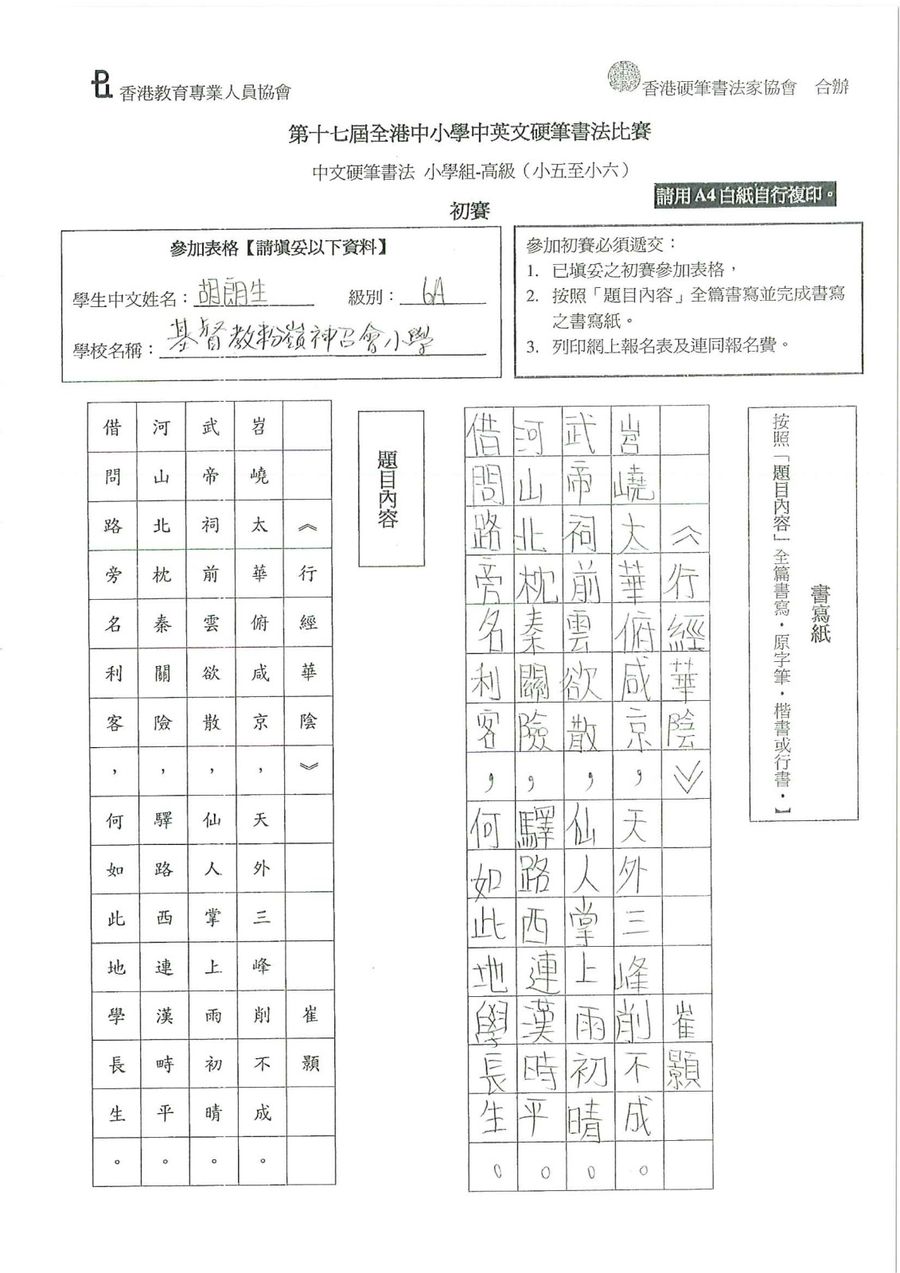 香港教育專業人員協會
香港硬筆書法家協會 合辦
第十七屆全港中小學中英文硬筆書法比賽
中文硬筆書法 小學組-高級（小五至小六）
請用 A4 白紙自行複印。
初賽
參加表格【請填妥以下資料】
學生中文姓名：胡朗生 級別：6A
學校名稱：基督教粉嶺神召會小學
參加初賽必須遞交：
1. 已填妥之初賽參加表格，
2. 按照「題目內容」全篇書寫並完成書寫
之書寫紙。
3. 列印網上報名表及連同報名費。
書寫紙
按照「題目內容」全篇書寫．原字筆．楷書或行書．】
《行經華陰》崔顥
岧嶢太華俯咸京，天外三峰削不成。
武帝祠前雲欲散，仙人掌上雨初晴。
河山北枕秦關險，驛路西連漢時平。
借問路旁名利客，何如此地學長生。
題目內容
《行經華陰》崔顥
岧嶢太華俯咸京，天外三峰削不成。
武帝祠前雲欲散，仙人掌上雨初晴。
河山北枕秦關險，驛路西連漢畤平。
借問路旁名利客，何如此地學長生。